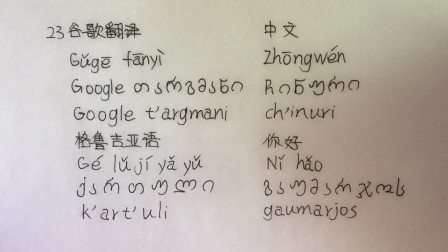 23 谷歌翻译 中文
Gǔgē fānyì Zhōngwén
Google თარგმანი ჩინური
Google t'argmani ch'inuri
格鲁吉亚语 你好
Gé lǔ jí yǎ yǔ Nǐ hǎo
ქართული გაუმარჯოს
k'art'uli gaumarjos